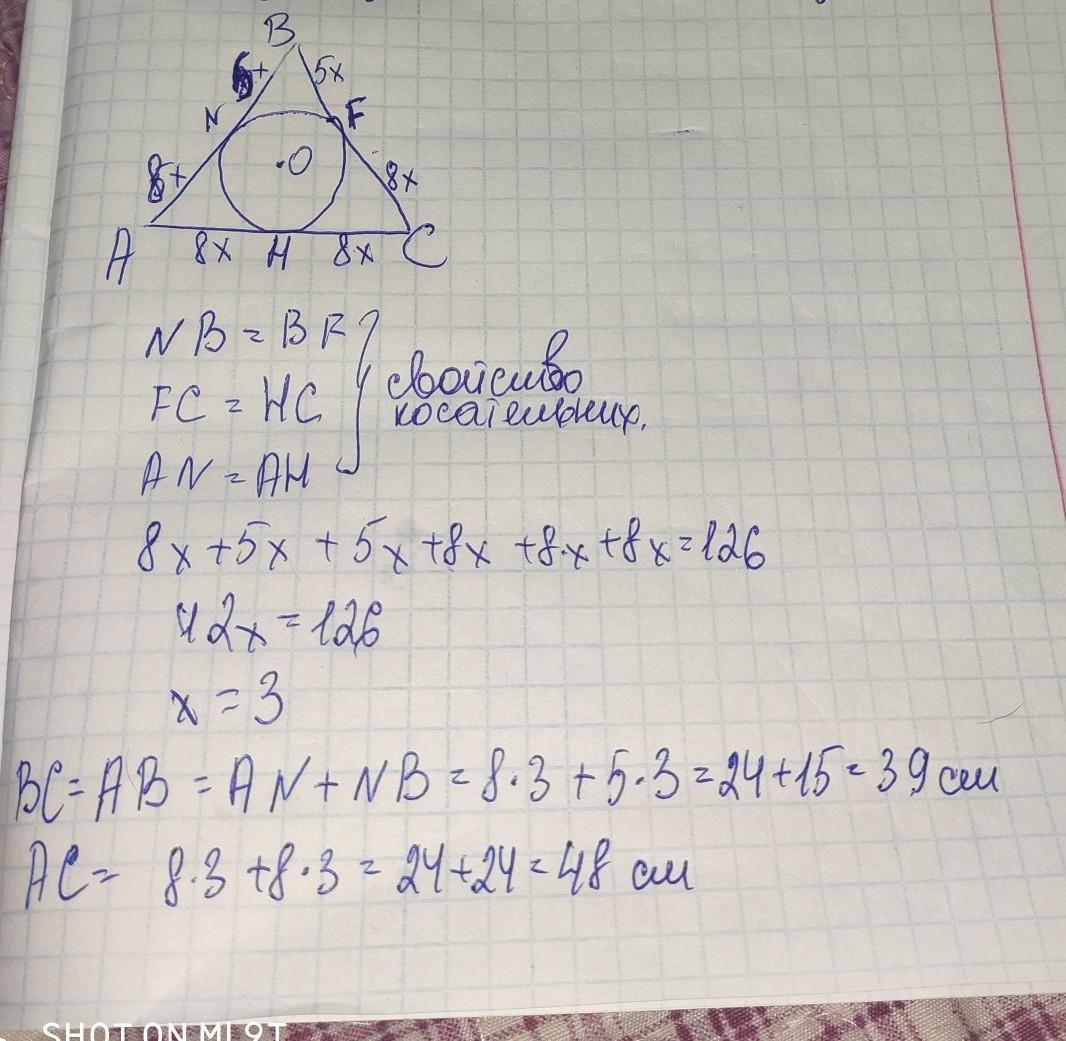 B
5x
5x
N
F
O
8x
8x
A
8x
H
8x
C
NB = BF
FC = HC
свойство
косательных.
AN = AH
8x + 5x + 5x + 8x + 8x + 8x = 126
42x = 126
x = 3
BC = AB = AN + NB = 8·3 + 5·3 = 24 + 15 = 39 см
AC = 8·3 + 8·3 = 24 + 24 = 48 см
SHOT ON MI 9T